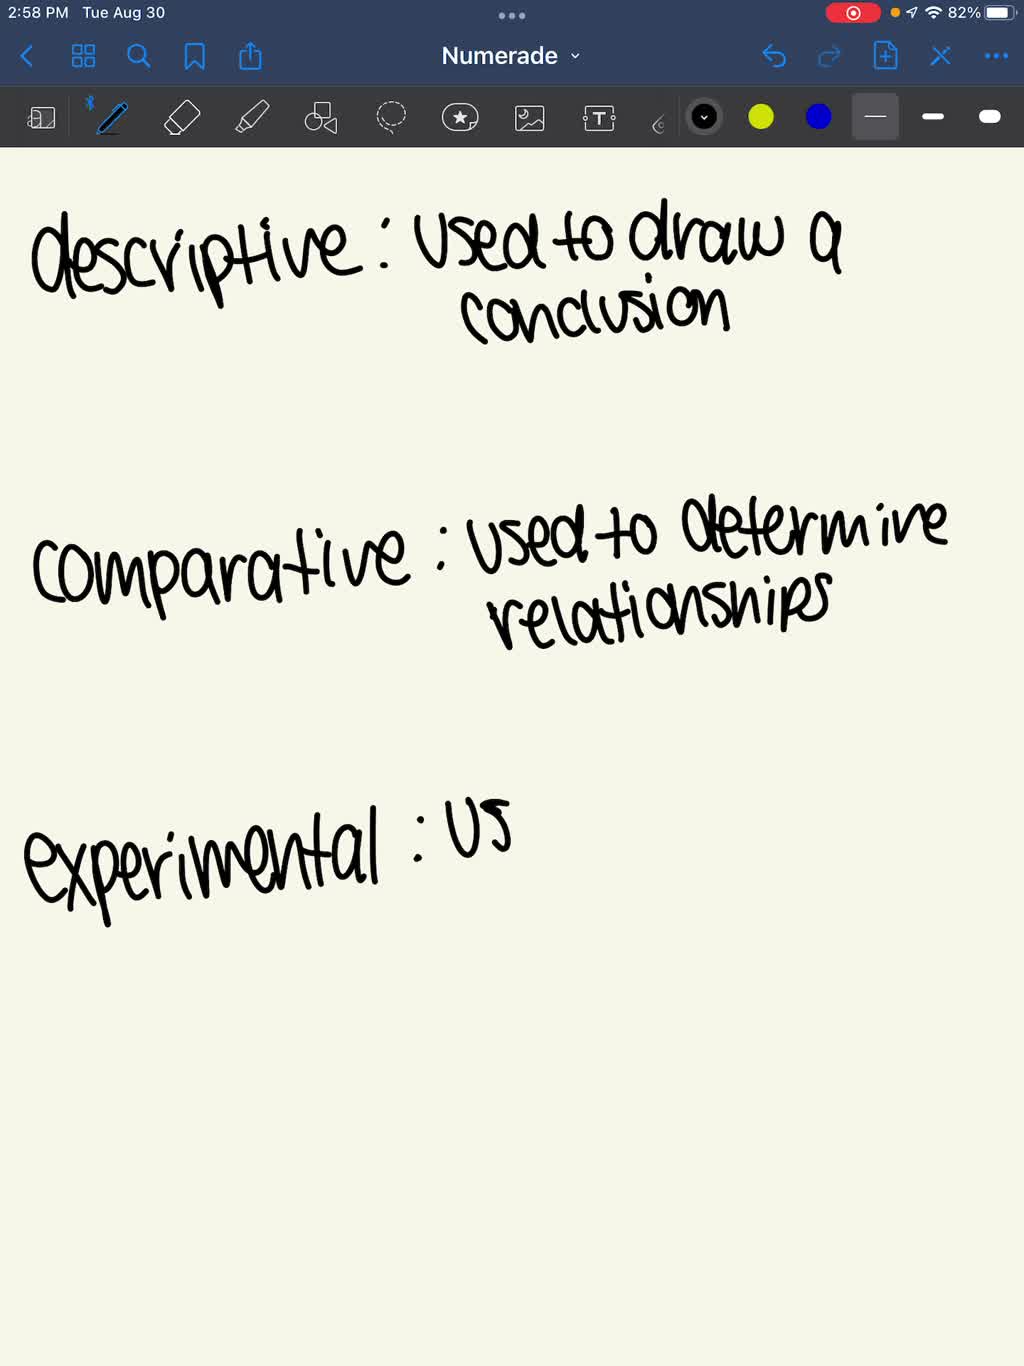 2:58 PM Tue Aug 30
82%
Numerade
T
descriptive : used to draw a
conclusion
comparative : used to determine
relationships
experimental : us